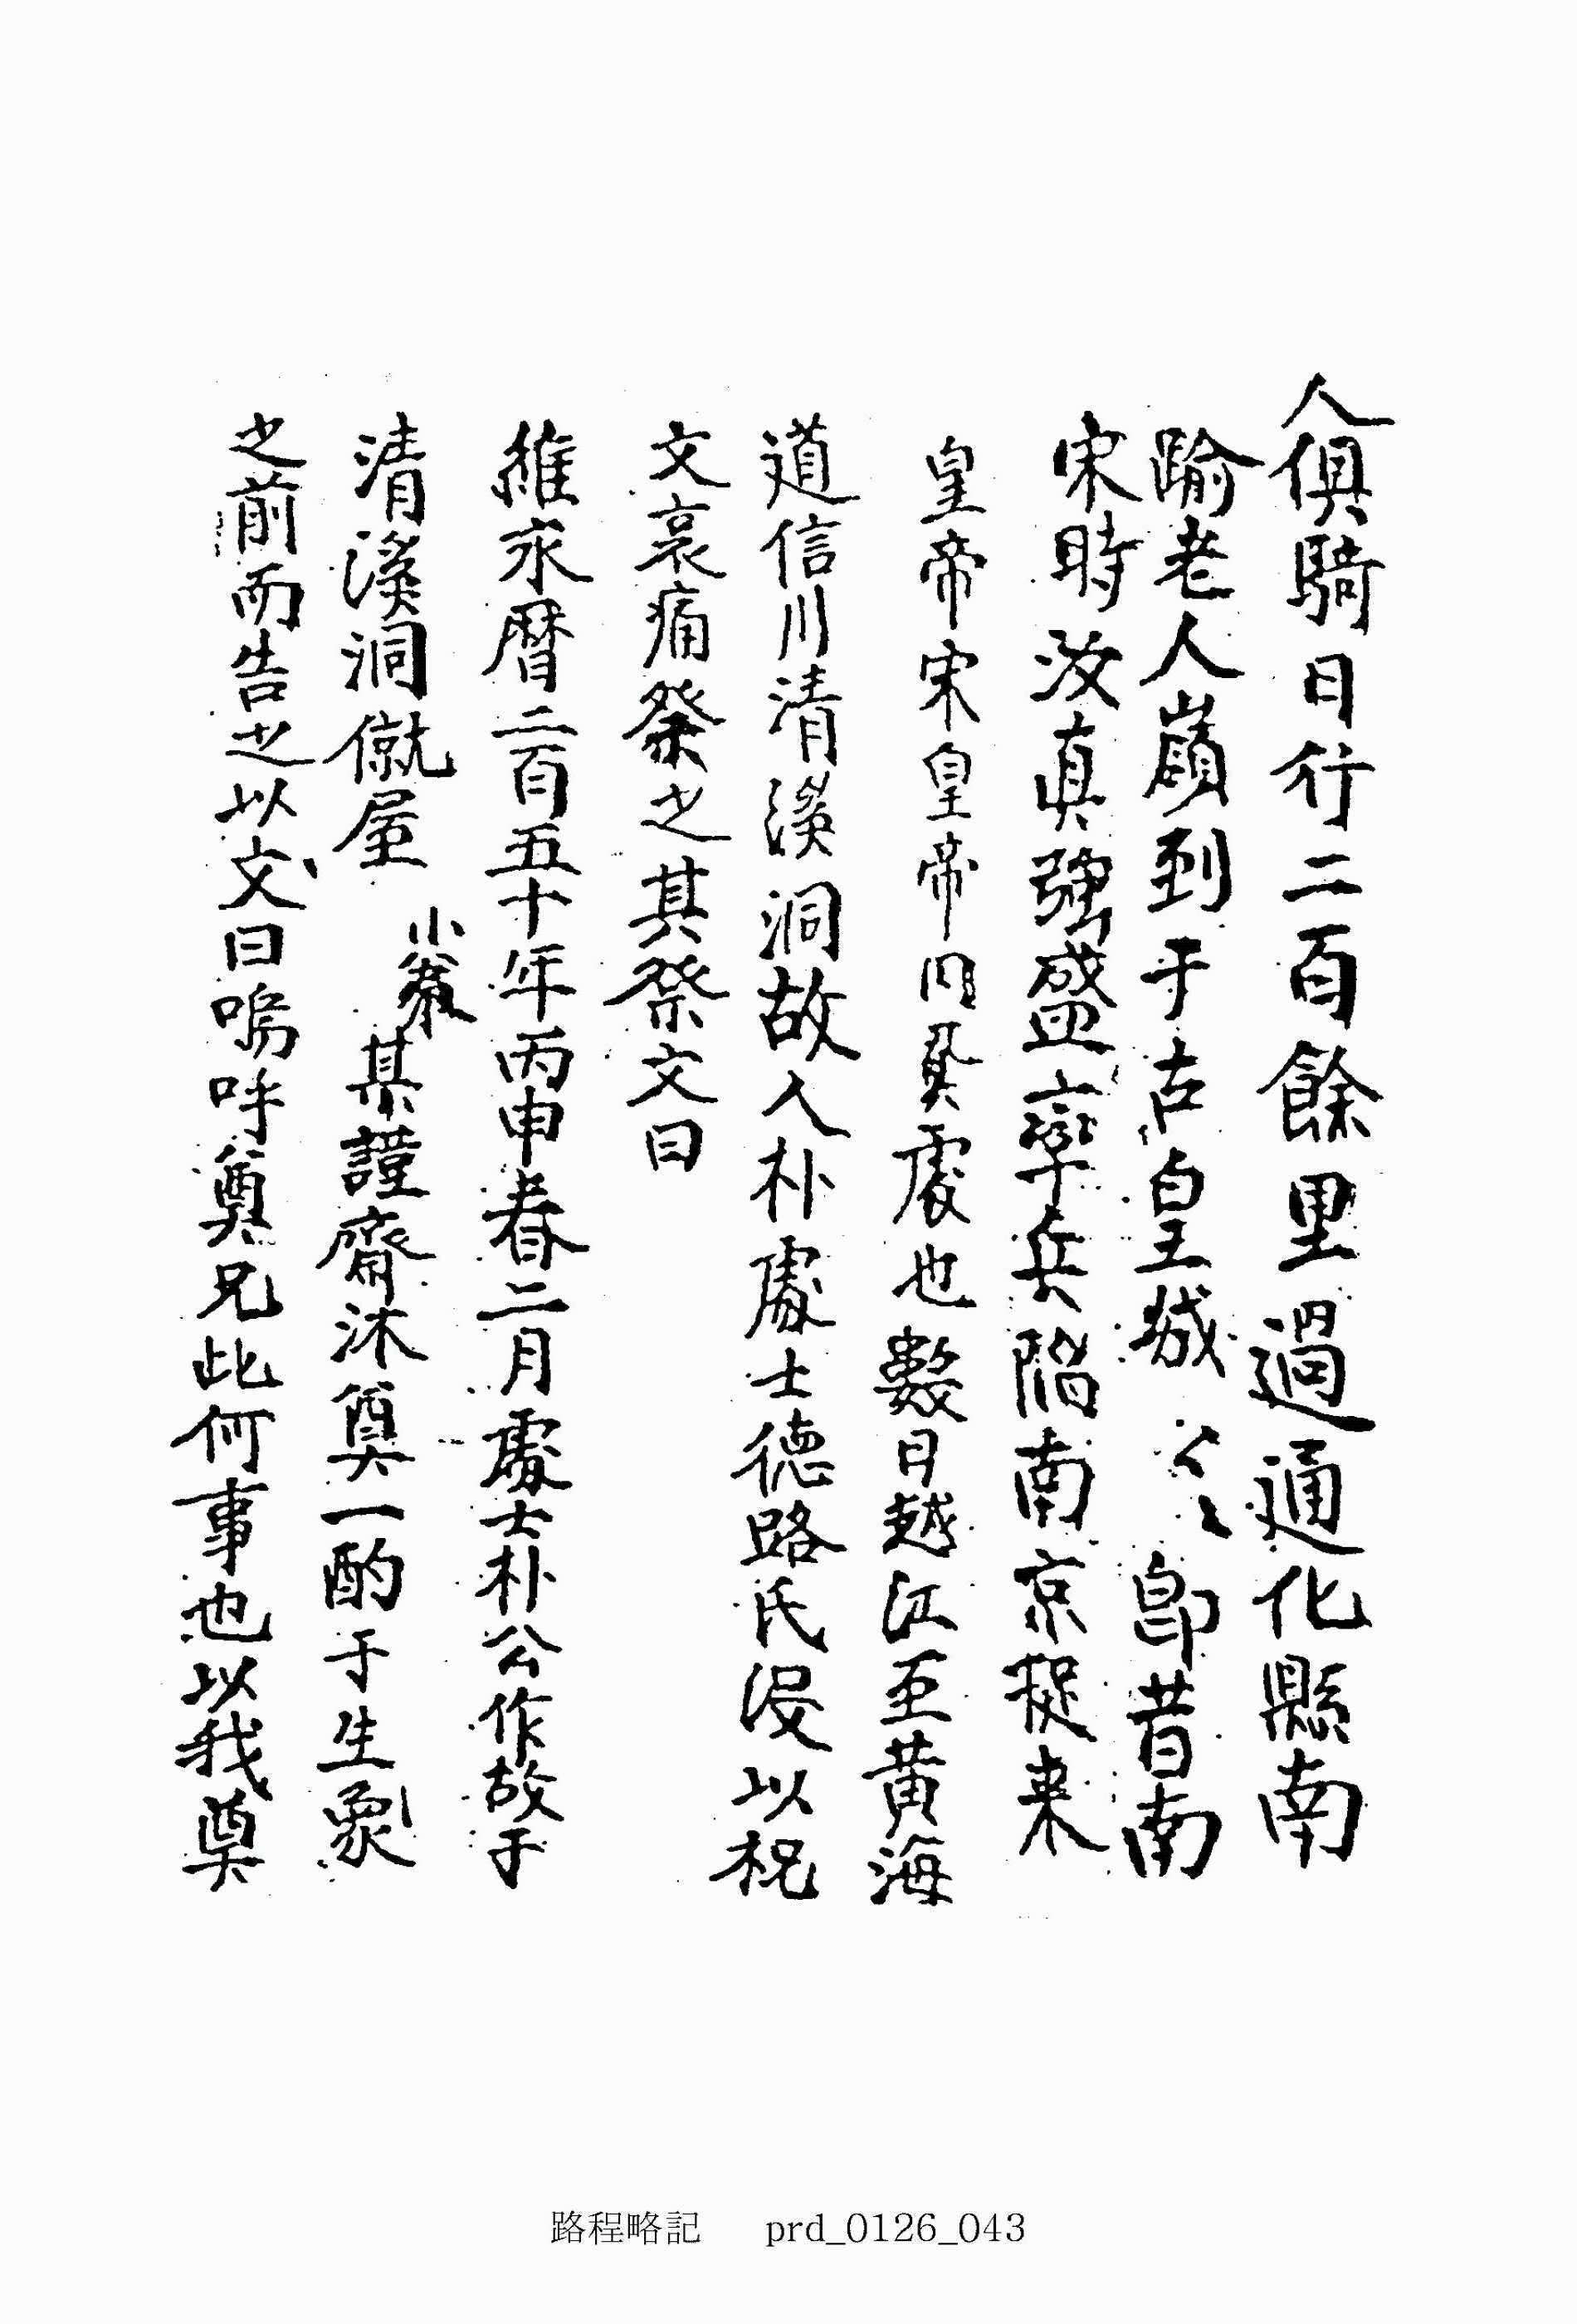 人俱騎日行二百餘里過通化縣南
踰老人嶺到于古皇城〻〻卽昔南
宋時汝眞強盛率兵陷南京捉来
皇帝宋皇帝囚処也數日越江至黃海
道信川清溪洞故人朴處士德路氏沒以祝
文哀痛祭之其祭文曰
維永曆二百五十年丙申春二月處士朴公作故于
清溪洞僦屋 小弟某謹齋沐奠一酌于生象
之前而告之以文曰嗚呼奠兄此何事也以我奠
路程略記 prd_0126_043